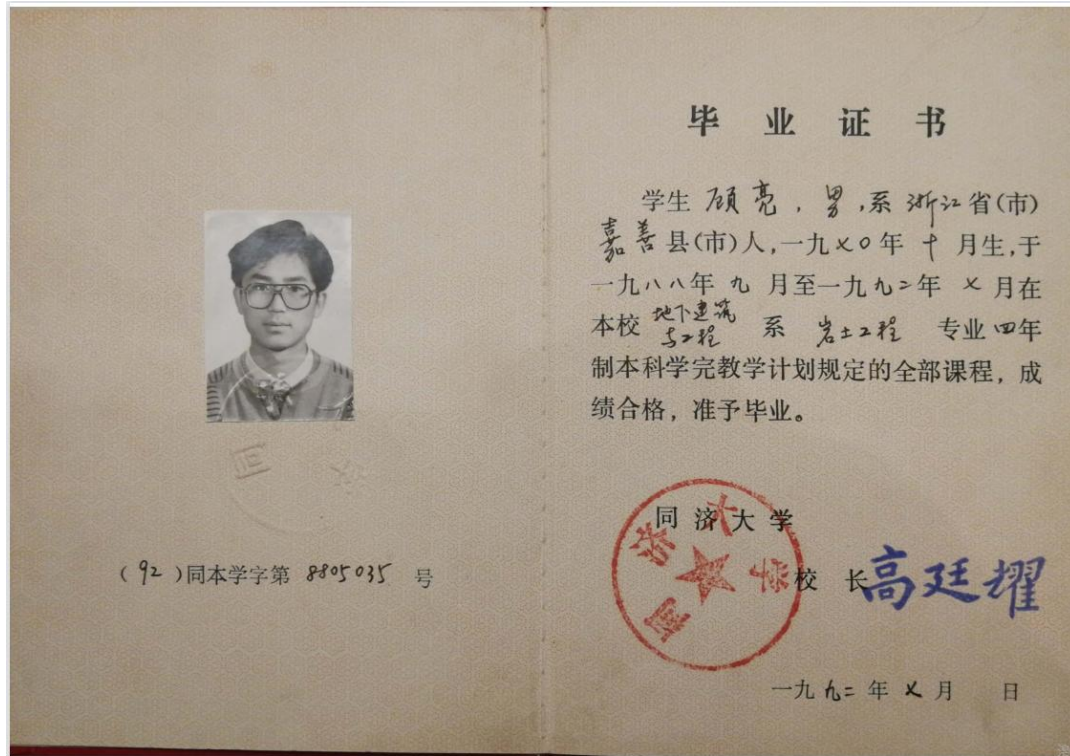 （92）同本学字第 8805035 号
毕业证书
学生 顾亮，男，系 浙江省(市)
嘉善县(市)人，一九七〇年 十 月生，于
一九八八年 九 月至一九九二年 七 月在
本校 地下建筑与工程 系 岩土工程 专业四年
制本科学完教学计划规定的全部课程，成
绩合格，准予毕业。
同济大学
同济大学
校长 高廷耀
一九九二年 七 月 日